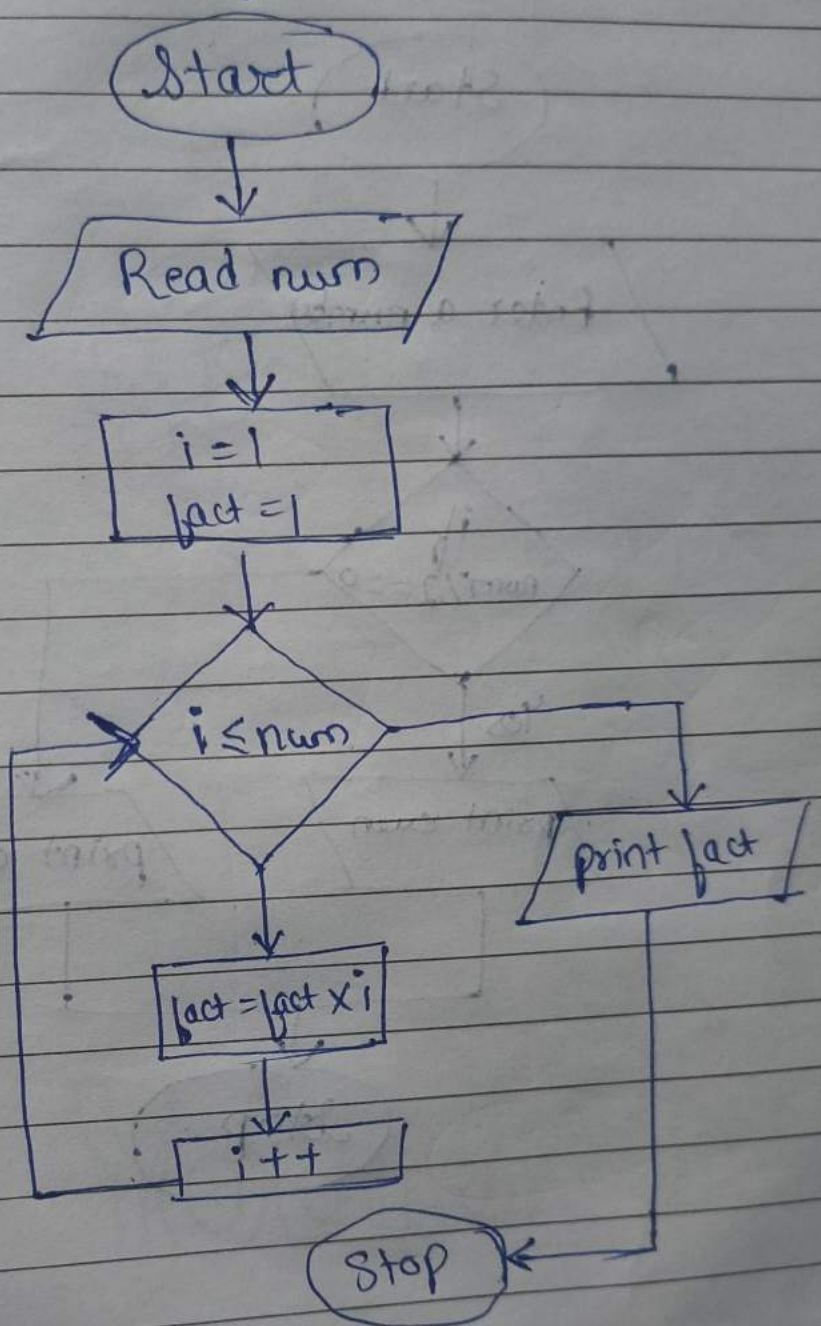 Start
Read num
i = 1
fact = 1
i ≤ num
print fact
fact = fact × i
i++
Stop